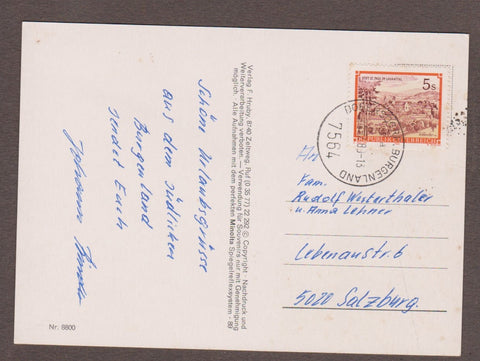 Schöne Urlaubsgrüsse
aus dem südlichen
Burgenland
sendet Euch
Verlag F. Hruby, 8740 Zeltweg, Ruf (0 35 77) 22 2 92 © Copyright - Nachdruck und
Weiterverarbeitung verboten. — Verwendung für Souvenirs nur mit Genehmigung
möglich. Alle Aufnahmen mit dem perfekten Minolta Spiegelreflexsystem - 80
STIFT ST. PAUL IM LAVANTTAL
5s
REPUBLIK ÖSTERREICH
BURGENLAND
7564
An
Fam.
Rudolf Westerthaler
u. Anna Lehner
Lebenaustr. 6
5020 Salzburg.
Nr. 8800